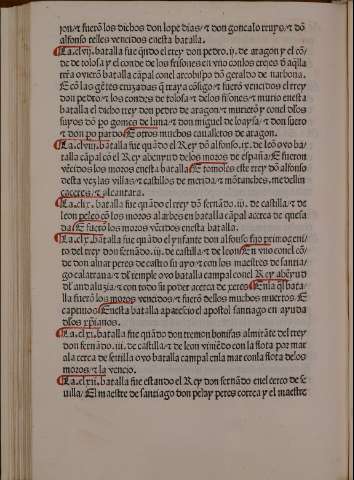 ron/ ⁊ fuerõ los dichos don lope dias/ ⁊ don goncalo ruys/ ⁊ dõ
alfonso telles vencidos enesta batalla.
La.clvij. batalla fue qñdo el rey don pedro.ij. de aragon y el cõ
de de tolosa y el conde de los frisones en vno con los
tra ovierõ batalla cãpal conel arcobispo dõ geraldo de narbona.
E cõ las gẽtes cruzadas q̃ traya cõsigo/ ⁊ fuerõ vencidos el rrey
don pedro/ ⁊ los condes de tolosa/ ⁊ delos frisones/ ⁊ murio enesta
batalla el dicho rrey don pedro de aragon/ ⁊ muriero y conel dlos
suyos dõ po gomes de luna/ ⁊ don miguel de loaysa/ ⁊ don suero
⁊ don po pardo/ E otros muchos caualleros de aragon.
La.clviij. batalla fue quãdo el Rey dõ alfonso.ix. de leõ ovo ba/
talla cãpal cõ el Rey abenyud delos moros de españa/ E fueron
vẽcidos los moros enesta batalla/ E tomoles este rrey dõ alfonso
desta vez las villas/ ⁊ castillos de merida/ ⁊ mõtanches. medellin
caceres/ ⁊ alcantara.
La.clix. batalla fue quãdo el rrey dõ fernãdo.iij. de castilla/ ⁊ de
leon peleo cõ los moros alarbes en batalla cãpal acerca de quesa
da/ E fuerõ los moros vẽcidos enesta batalla.
La.clx. batalla fue quãdo el ynfante don alfonso fijo primogeni/
to del rrey don fernãdo.iij. de castilla/ ⁊ de leon/ En vno conel cõ/
de don aluar peres de castro su ayo/ ⁊ con los maestres de santia/
go calatraua/ ⁊ dl temple ovo batalla campal conel Rey abẽyud
dl andaluzia/ ⁊ con todo su poder acerca de xeres/ Enla ql bata/
lla fuerõ los moros vencidos/ ⁊ fuerõ dellos muchos muertos/ E
captiuos/ Enesta batalla aparescio el apostol santiago en ayuda
dlos xp̃ianos.
La.clxi. batalla fue quãdo don remon bonifas almirãte del rrey
don fernãdo.iij. de castilla/ ⁊ de leon viniẽdo con la flota por mar
ala cerca de seuilla ovo batalla campal enla mar conla flota delos
moros/ ⁊ la vencio.
La.clxij. batalla fue estando el Rey don fernãdo enel cerco de se
uilla/ El maestre de santiago don pelay peres correa y el maestre